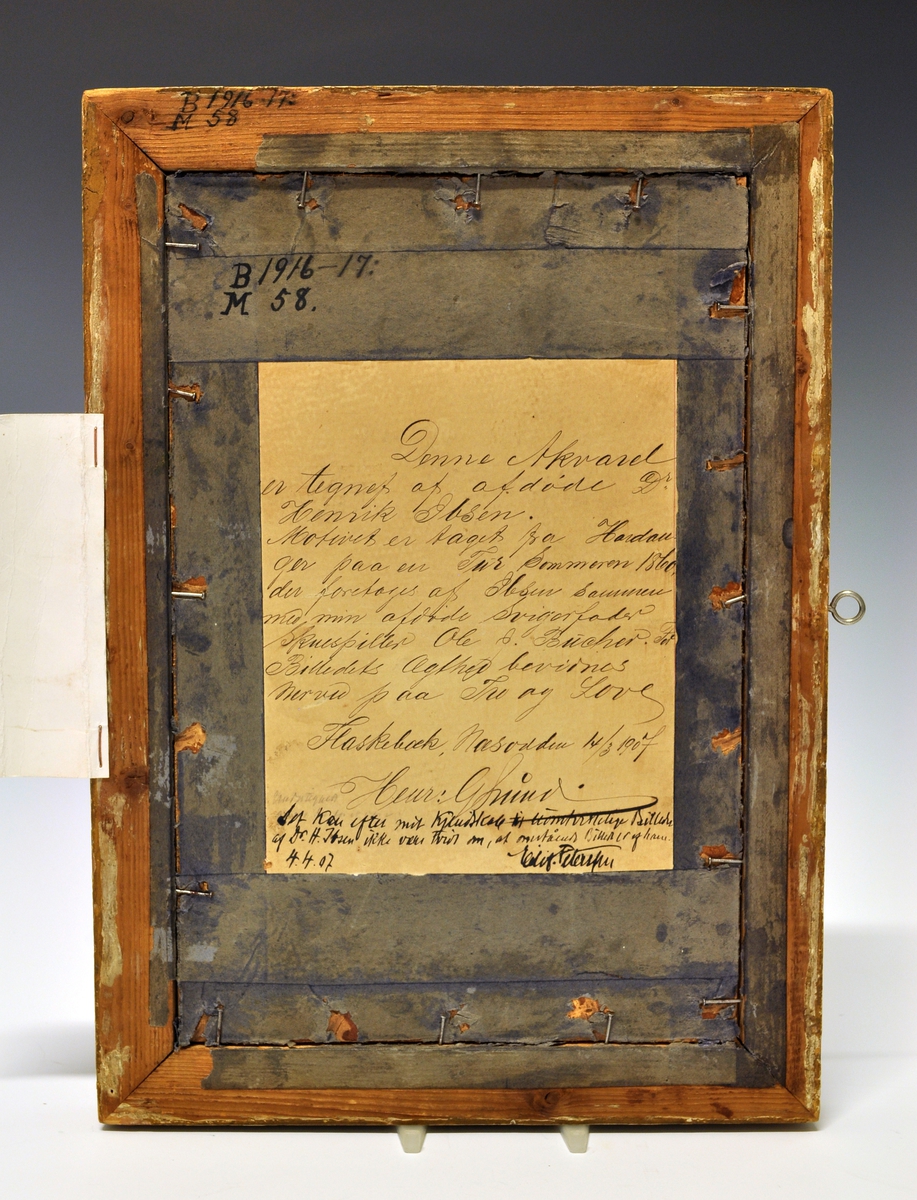 B 1916-17:
M 58
B 1916-17:
M 58.
Denne Akvarel
er tegnet af afdøde Dr
Henrik Ibsen.
Motivet er taget fra Hardan
ger paa en Tur Sommeren 1860,
der foretoges af Ibsen sammen
med min afdøde Svigerfader
Skuespiller Ole J. Bucher. For
Billedets Ægthed bevidnes
herved paa Tro og Love
Flaskebæk, Næsodden 14/3 1907
Henr: Lund.
Det kan efter mit Kjendskab til Billeder
af Dr. H. Ibsen ikke være tvivl om, at Billede er af ham.
4.4.07
Eilif Peterssen